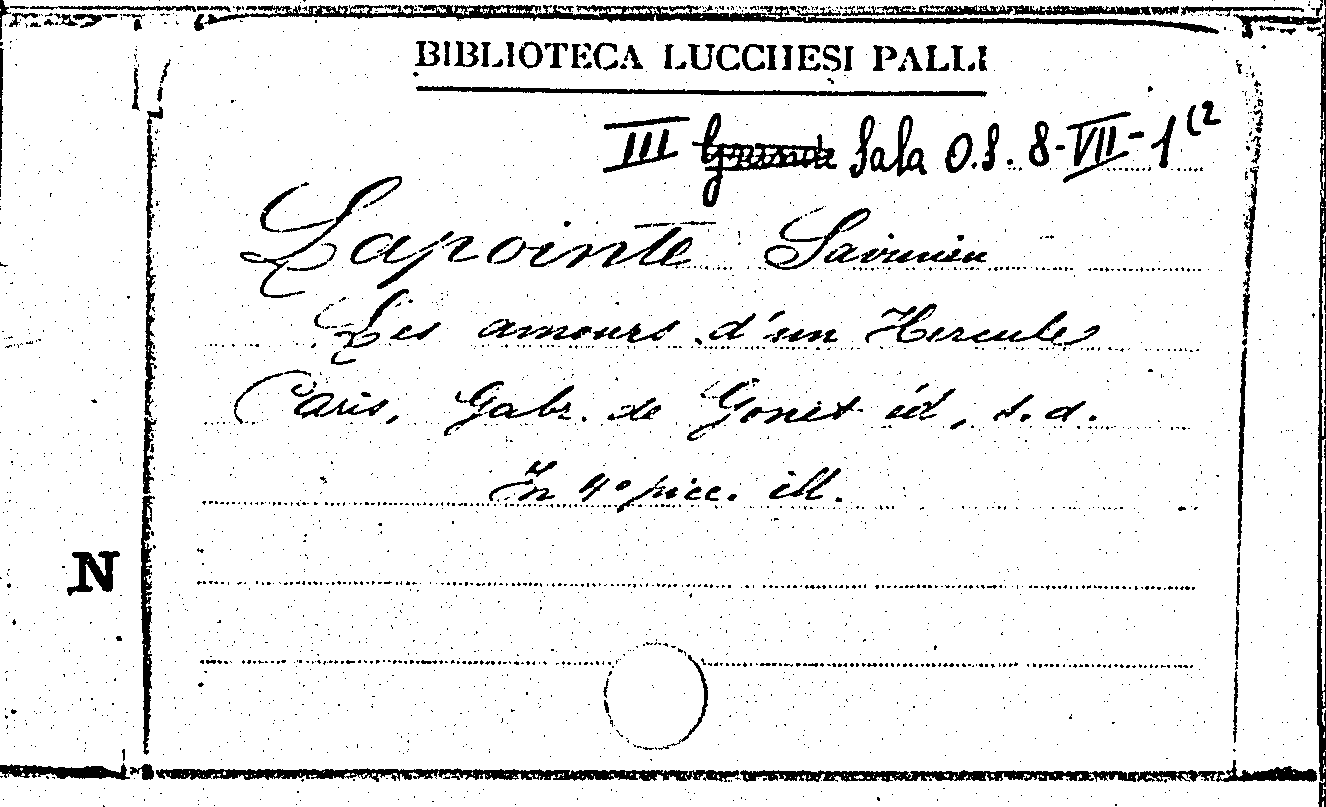 BIBLIOTECA LUCCHESI PALLI
III Grande Sala O.S. 8-VII-1(2
Lapointe Savinien
Les amours d'un Hercule
Paris, Gabr. de Gonet éd, s.d.
In 4° picc. ill.
N